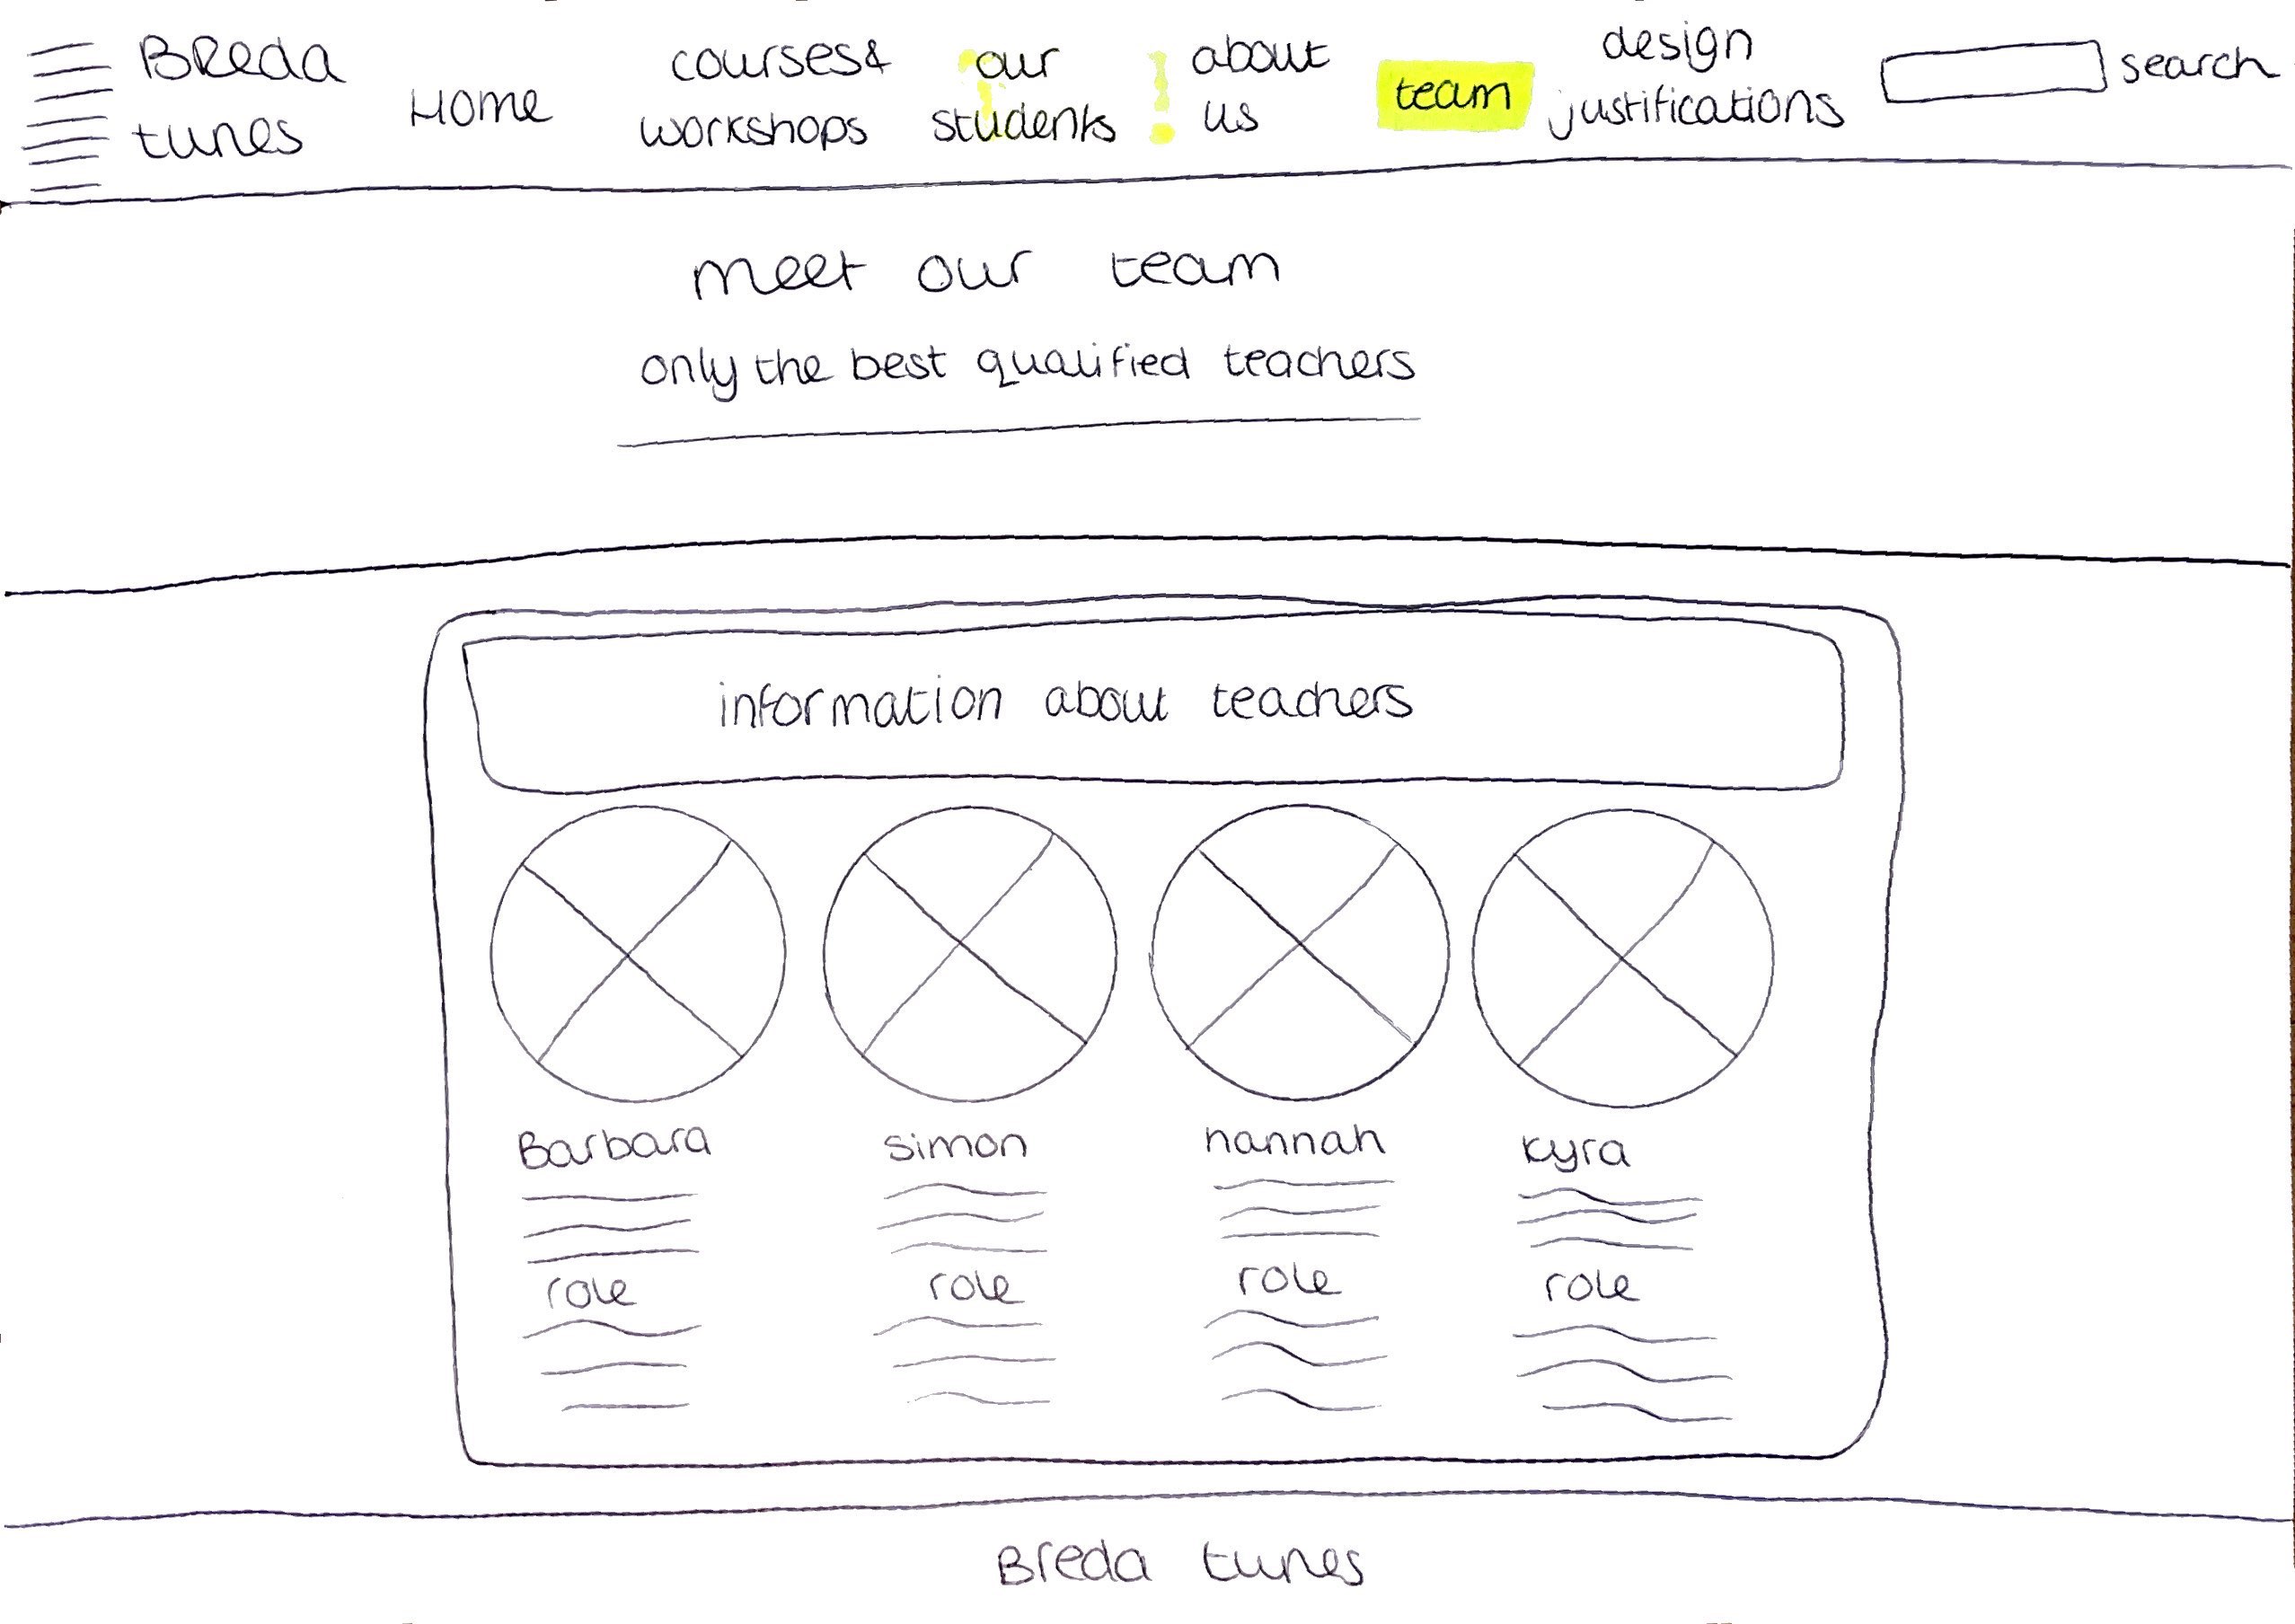 Breda
tunes
Home
courses&
workshops
our
students
about
us
team
design
justifications
search
meet our team
only the best qualified teachers
information about teachers
Barbara
simon
hannah
kyra
role
role
role
role
Breda tunes